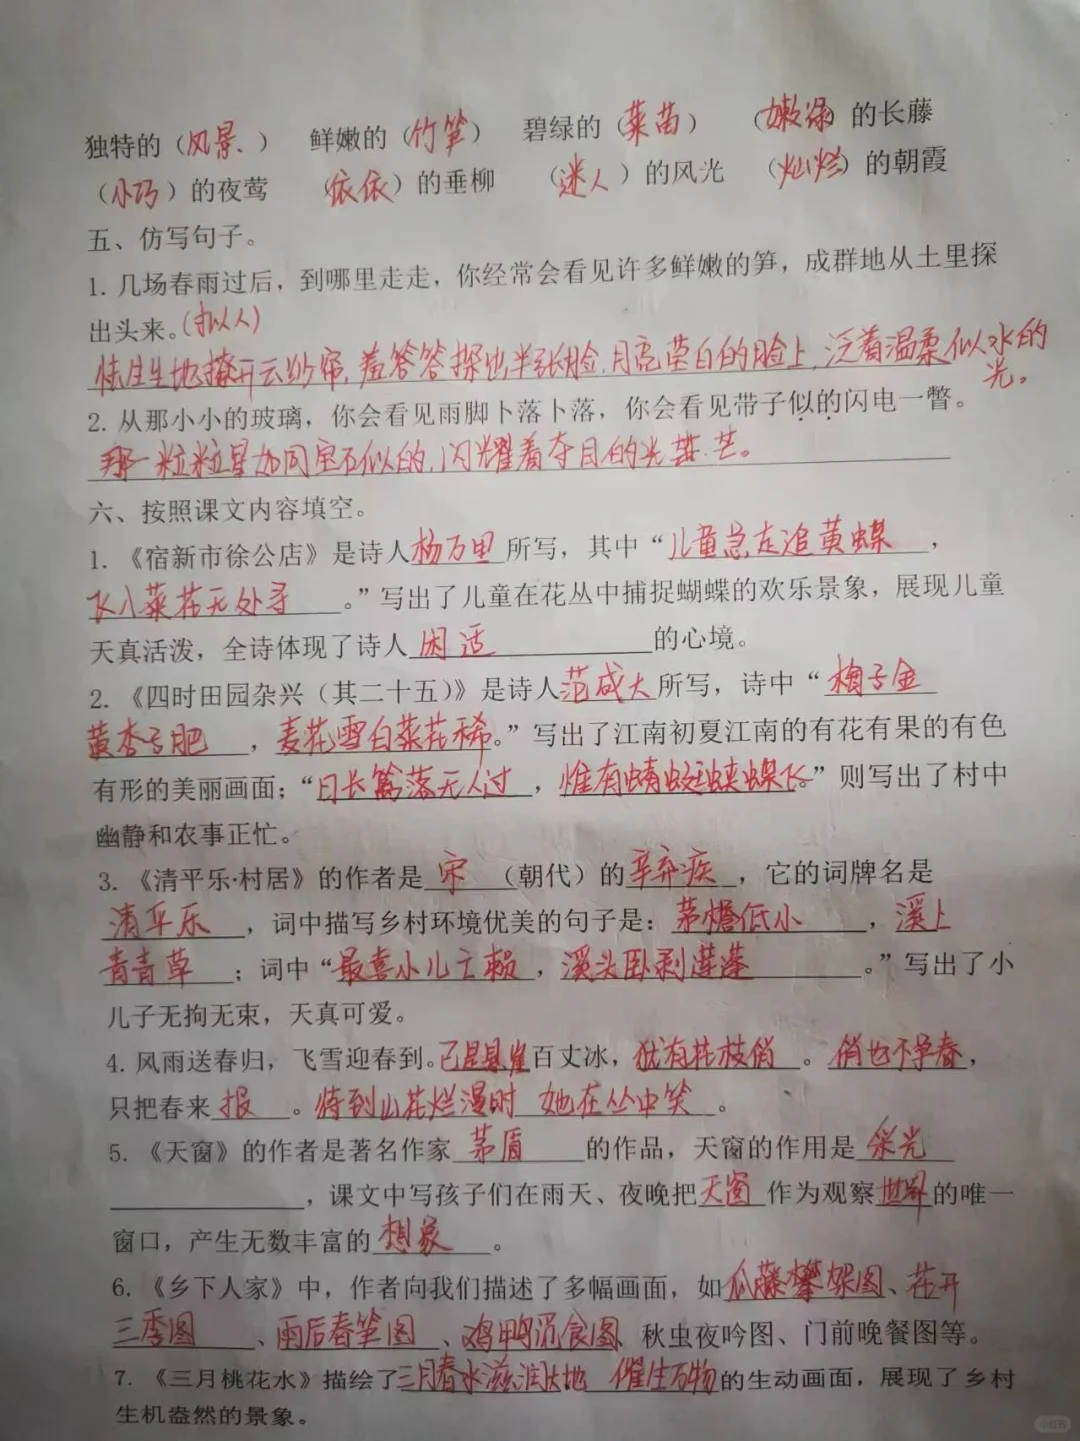 独特的（风景、） 鲜嫩的（竹笋） 碧绿的（菜苗） （嫩绿）的长藤
（小巧）的夜莺 （依依）的垂柳 （迷人）的风光 （灿烂）的朝霞
五、仿写句子。
1. 几场春雨过后，到哪里走走，你经常会看见许多鲜嫩的笋，成群地从土里探
出头来。（拟人）
怯生生地撩开云纱帘，羞答答探出半张脸，月亮莹白的脸上，泛着温柔似水的
光。
2. 从那小小的玻璃，你会看见雨脚卜落卜落，你会看见带子似的闪电一瞥。
那一粒粒星如同宝石似的，闪耀着夺目的光芒。
六、按照课文内容填空。
1. 《宿新市徐公店》是诗人杨万里所写，其中“儿童急走追黄蝶，
飞入菜花无处寻。”写出了儿童在花丛中捕捉蝴蝶的欢乐景象，展现儿童
天真活泼，全诗体现了诗人闲适的心境。
2. 《四时田园杂兴（其二十五）》是诗人范成大所写，诗中“梅子金
黄杏子肥，麦花雪白菜花稀。”写出了江南初夏江南的有花有果的有色
有形的美丽画面；“日长篱落无人过，惟有蜻蜓蛱蝶飞。”则写出了村中
幽静和农事正忙。
3. 《清平乐·村居》的作者是宋（朝代）的辛弃疾，它的词牌名是
清平乐，词中描写乡村环境优美的句子是：茅檐低小，溪上
青青草；词中“最喜小儿亡赖，溪头卧剥莲蓬。”写出了小
儿子无拘无束，天真可爱。
4. 风雨送春归，飞雪迎春到。已是悬崖百丈冰，犹有花枝俏。俏也不争春，
只把春来报。待到山花烂漫时 她在丛中笑。
5. 《天窗》的作者是著名作家茅盾的作品，天窗的作用是采光
，课文中写孩子们在雨天、夜晚把天窗作为观察世界的唯一
窗口，产生无数丰富的想象。
6. 《乡下人家》中，作者向我们描述了多幅画面，如瓜藤攀架图、花开
三季图、雨后春笋图、鸡鸭觅食图、秋虫夜吟图、门前晚餐图等。
7. 《三月桃花水》描绘了三月春水滋润大地 催生万物的生动画面，展现了乡村
生机盎然的景象。
小红书